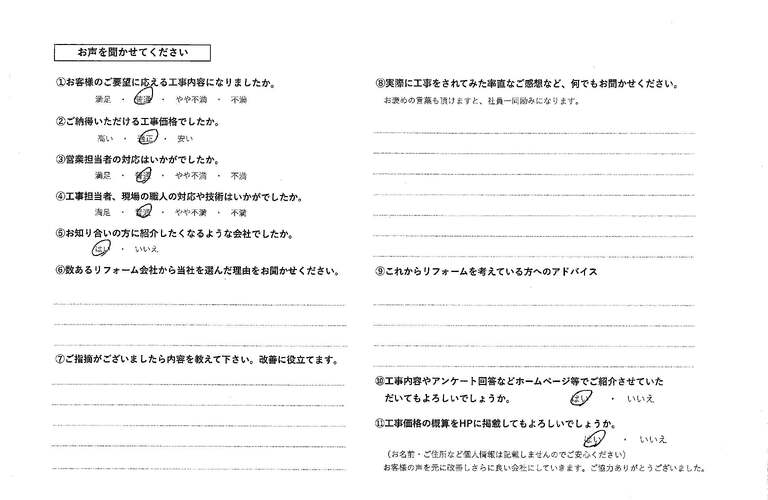 お声を聞かせてください
①お客様のご要望に応える工事内容になりましたか。
満足 ・ 普通 ・ やや不満 ・ 不満
②ご納得いただける工事価格でしたか。
高い ・ 適正 ・ 安い
③営業担当者の対応はいかがでしたか。
満足 ・ 普通 ・ やや不満 ・ 不満
④工事担当者、現場の職人の対応や技術はいかがでしたか。
満足 ・ 普通 ・ やや不満 ・ 不満
⑤お知り合いの方に紹介したくなるような会社でしたか。
はい ・ いいえ
⑥数あるリフォーム会社から当社を選んだ理由をお聞かせください。
⑦ご指摘がございましたら内容を教えて下さい。改善に役立てます。
⑧実際に工事をされてみた率直なご感想など、何でもお聞かせください。
お褒めの言葉も頂けますと、社員一同励みになります。
⑨これからリフォームを考えている方へのアドバイス
⑩工事内容やアンケート回答などホームページ等でご紹介させていた
だいてもよろしいでしょうか。 はい ・ いいえ
⑪工事価格の概算をHPに掲載してもよろしいでしょうか。
はい ・ いいえ
（お名前・ご住所など個人情報は記載しませんのでご安心ください）
お客様の声を元に改善しさらに良い会社にしていきます。ご協力ありがとうございました。